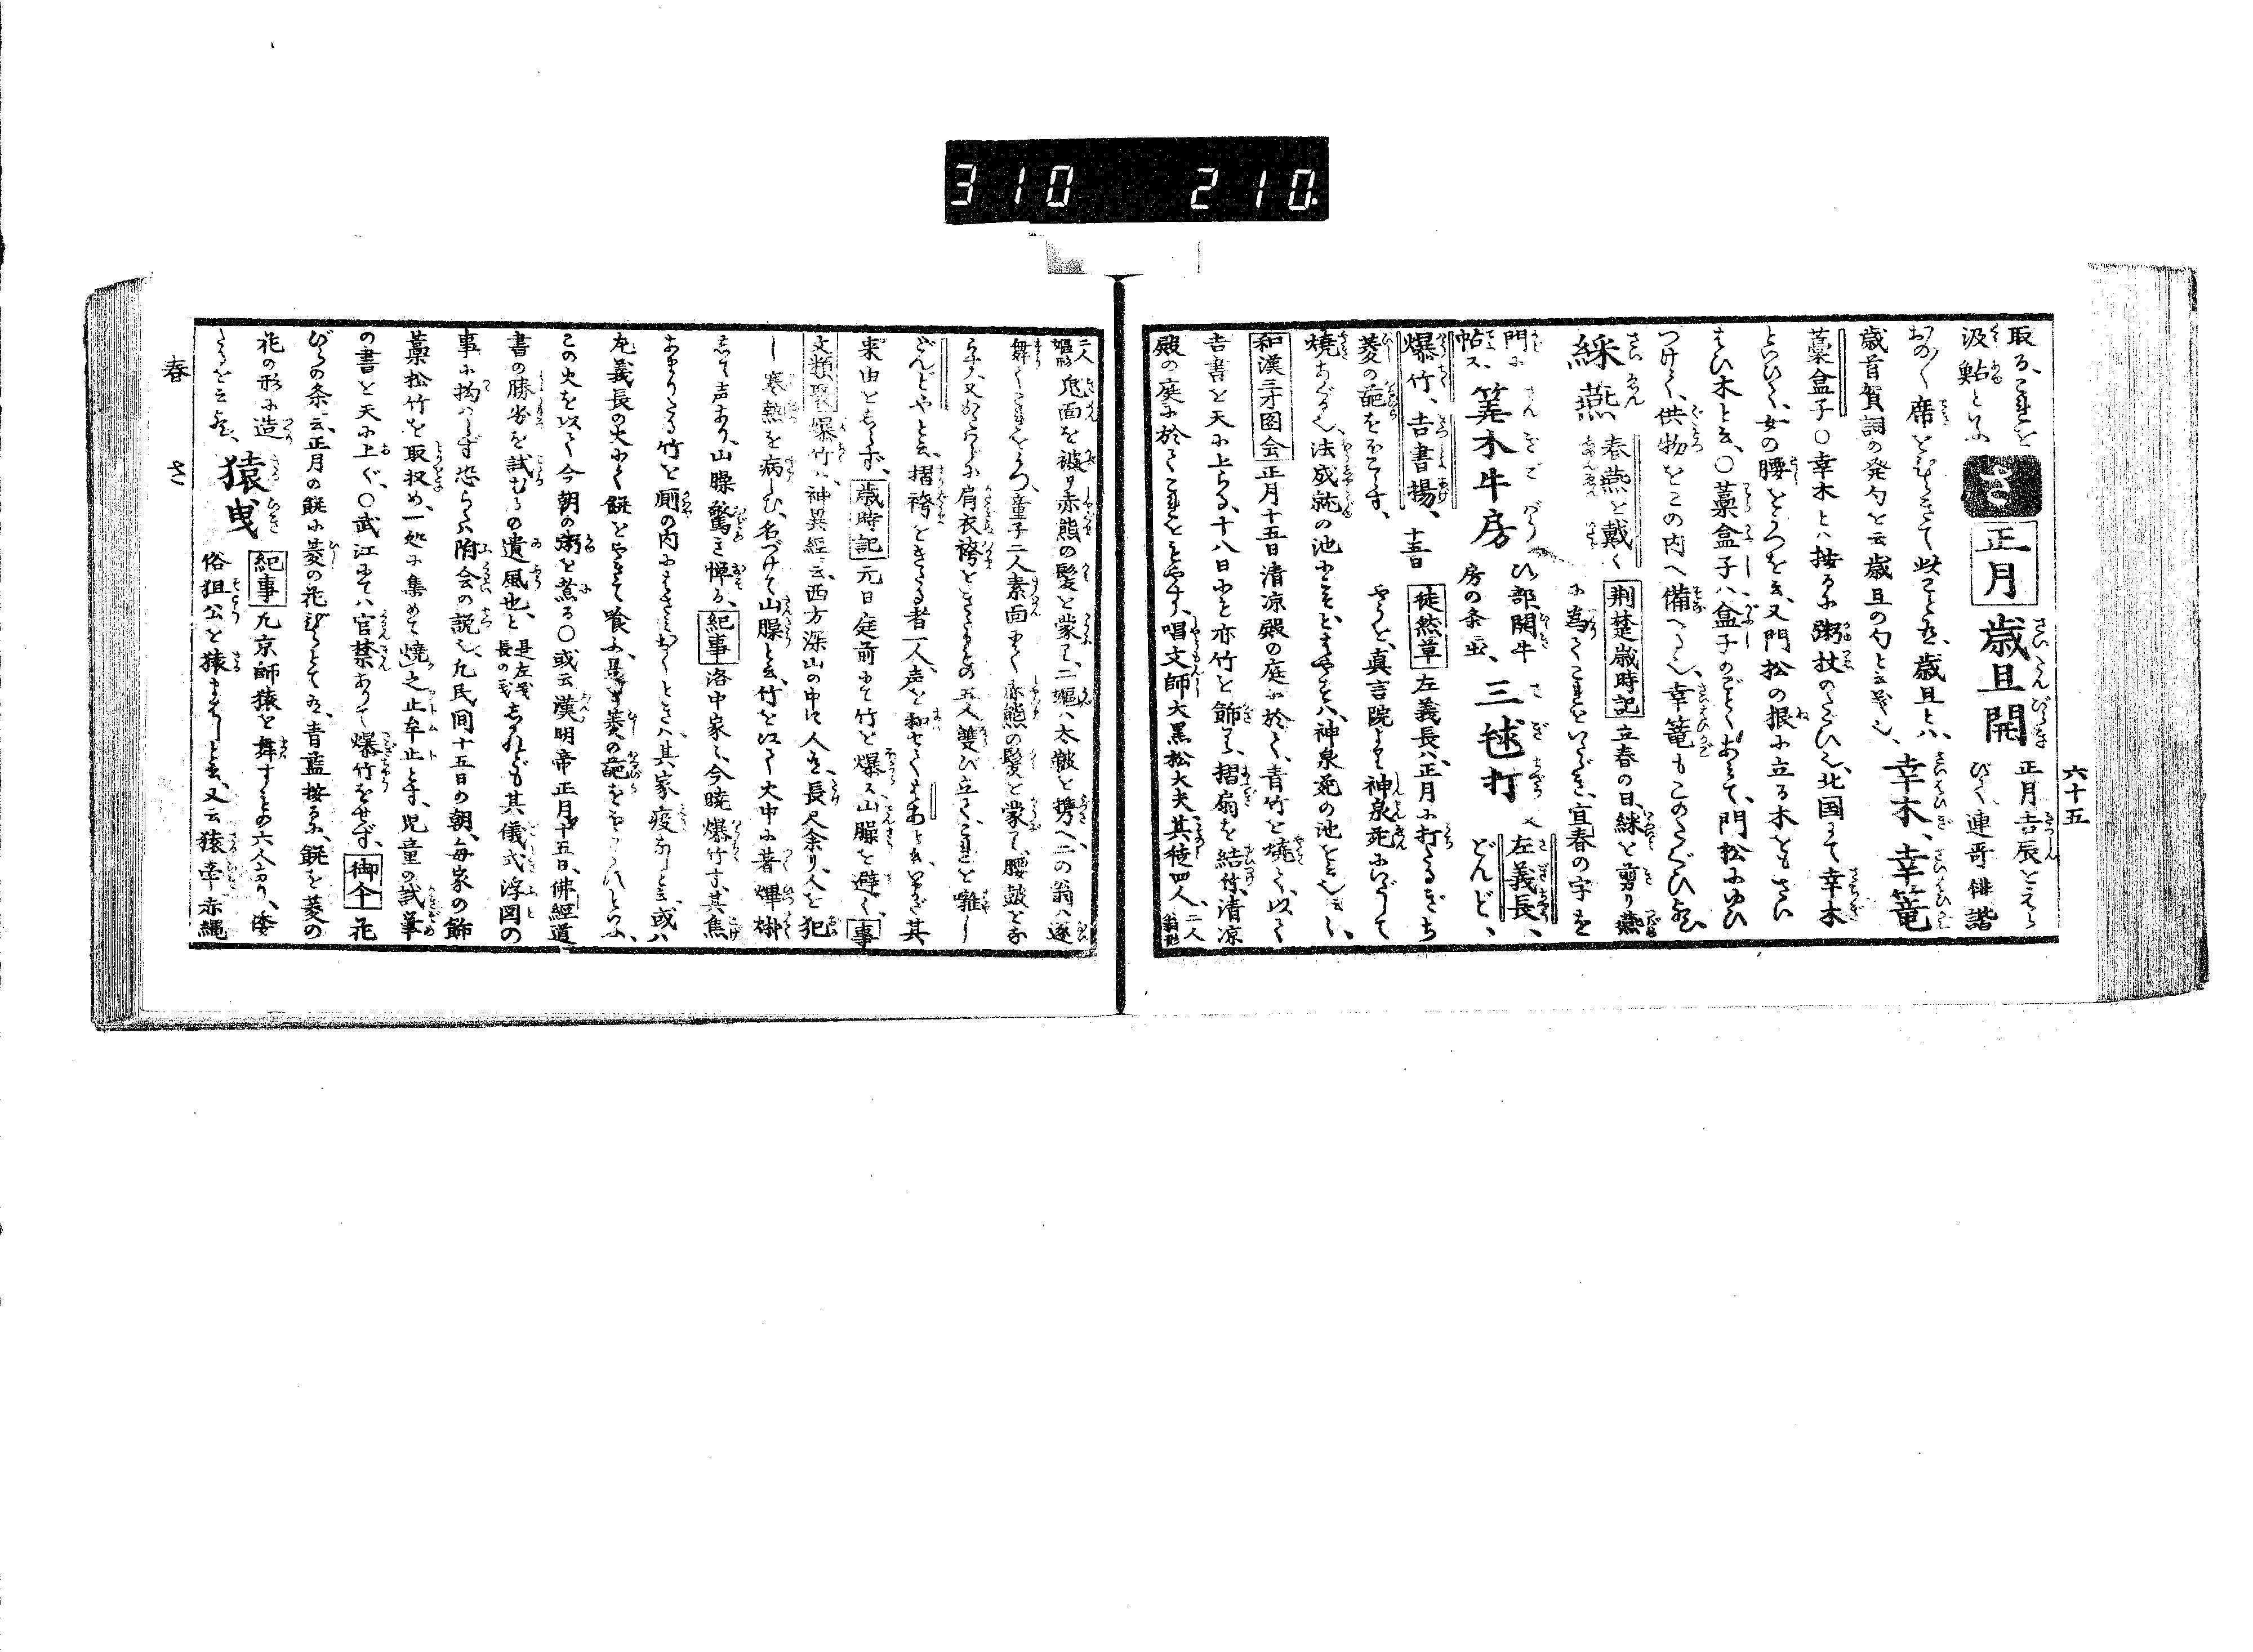 310 210
六十五
取る、これを
汲鮎といふ
さ
正月
歳旦開
正月吉辰をえらびて、連哥俳諧
おの〳〵席をひらきて此ことあり、歳旦とハ、
歳首賀詞の発句を云歳旦の句と云義也、
幸木、幸篭
藁盒子
〇幸木とハ按るに粥杖のたぐひ也、北国にて幸木
といひて、女の腰をうつを云、又門松の根に立る木をもさい
はひ木と云、〇藁盒子ハ盒子のごとくあみて、門松にゆひ
つけて、供物をこの内へ備へる也、幸篭もこのたぐひ也
綵燕
春燕を戴く
荆楚歳時記
立春の日、綵を剪り燕
に為てこれをいたゞき、宜春の字を
門に
帖ス、
筭木牛房
ひ部開牛
房の条ニ出、
三毬打
又
左義長、
どんど、
爆竹、吉書揚、
十五日
徒然草
左義長ハ、正月に打たるぎち
やうを、真言院より神泉苑にいだして
焼あぐる也、法成就の池にこそとはやすハ、神泉苑の池をいふ也、
和漢三才図会
正月十五日清凉殿の庭に於て、青竹を焼て、以て
吉書を天に上らる、十八日にも亦竹を飾り、摺扇を結付、清凉
殿の庭に於てこれをはやす、唱文師大黒松大夫、其徒四人、二人翁形
二人嫗形鬼面を被り赤熊の髪を蒙り、二嫗ハ太皷を携へ、二の翁ハ逐
舞てこれをうつ、童子二人素面にて、赤熊の髪を蒙て、腰皷をな
らす、又
肩衣袴をきたるもの五人雙び立て、これを囃し
どんどやと云、摺袴をきたる者一人、声を和せてはあと云、いまだ其
来由をしらず、
歳時記
元日庭前にて竹を爆ス山臊を避く、
事
文類聚
爆竹ハ、神異経云、西方深山の中に人あり、長尺余り、人を犯
し寒熱を病しむ、名づけて山臊と云、竹を以て火中に著
して声あり、山臊驚き憚る、
紀事
洛中家々、今暁爆竹す、其焦
あまりたる竹を厠の内にはさみおくときハ、其家疫なしと云、或ハ
左義長の火にて餅をやきて喰ふ、
この火を以て今朝の粥を煮る〇或云漢明帝正月十五日、佛經道
書の勝劣を試むるの遺風也と是左義長の義しかれども其儀式浮図の
事に拘ハらず恐らくハ附会の説也、凡民間十五日の朝、毎家の飾
藁松竹を取収め、一処に集めて焼之止牟止と云、児童の試筆
の書を天に上ぐ、〇武江にてハ官禁ありて爆竹をせず、
御傘
花
びらの条云、正月の餅に菱の花びらとてあり、青藍按るに、餅を菱の
花の形に造
るを云也、
猿曳
紀事
凡京師猿を舞すもの六人あり、倭
俗狙公を猿まはしと云、又云猿牽赤縄
春
さ